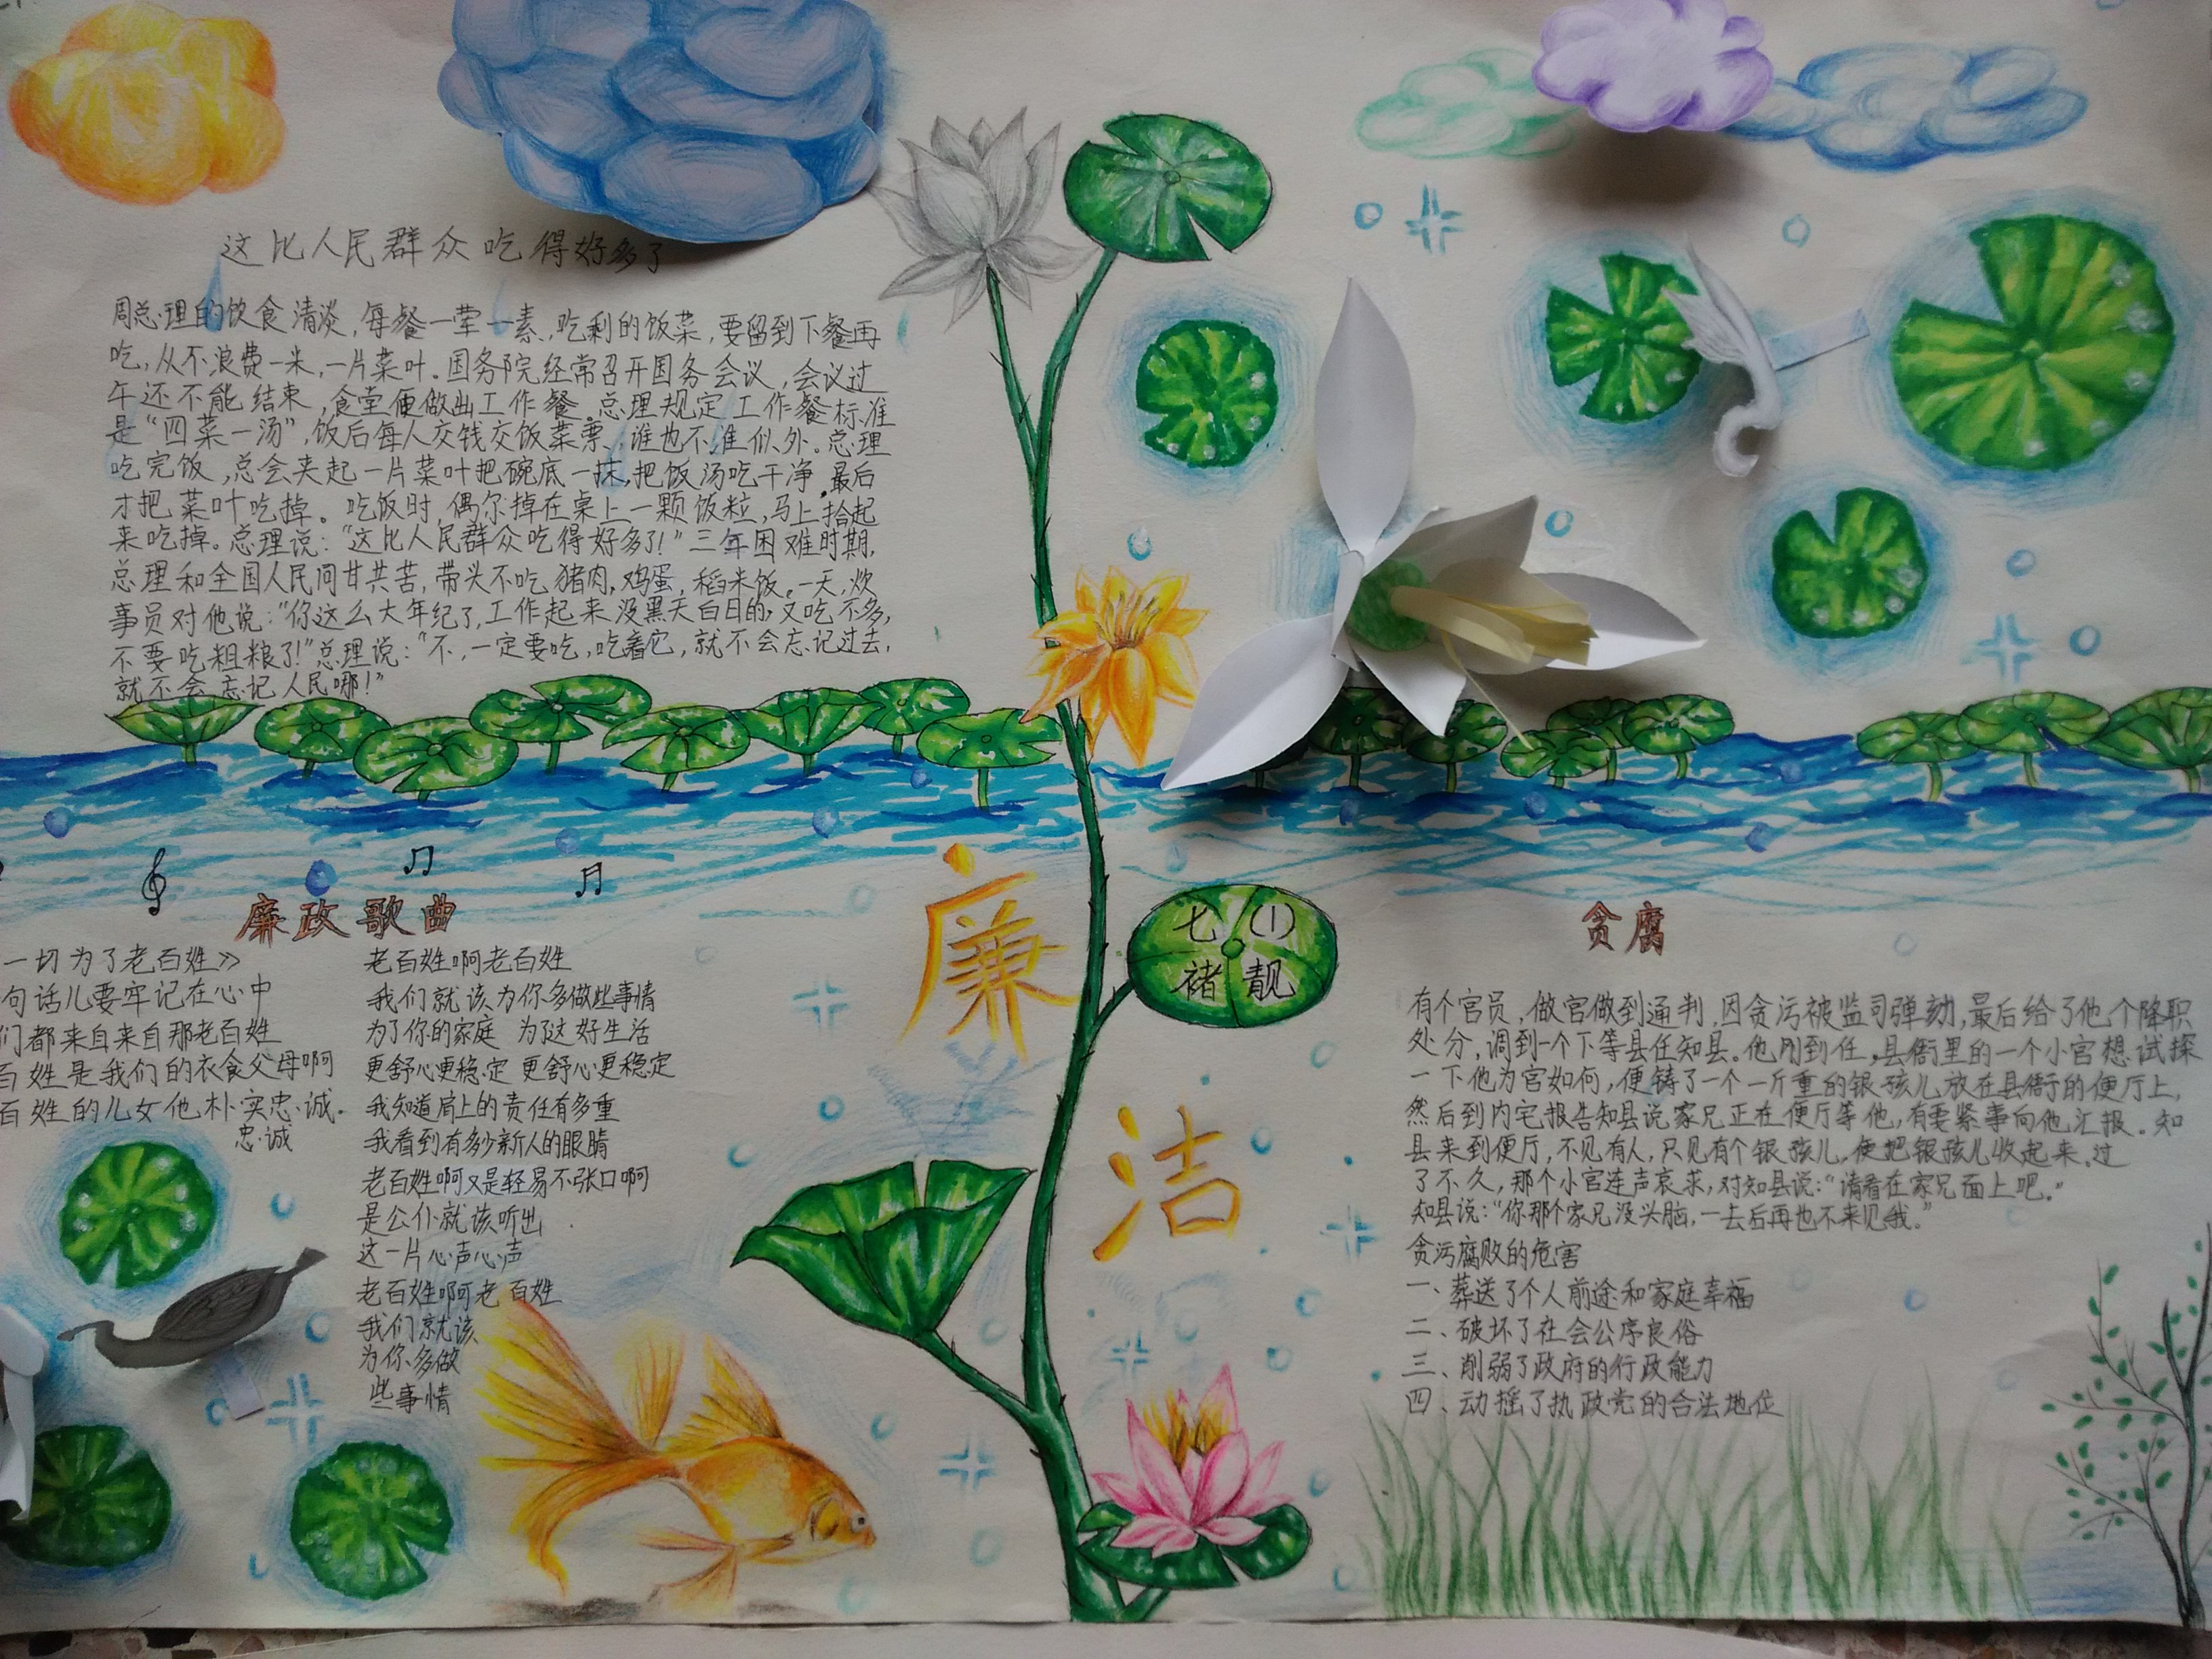 这比人民群众吃得好多了
周总理的饮食清淡,每餐一荤一素,吃剩的饭菜,要留到下餐再
吃,从不浪费一米,一片菜叶.国务院经常召开国务会议,会议过
午还不能结束,食堂便做出工作餐.总理规定工作餐标准
是“四菜一汤”,饭后每人交钱交饭菜票,谁也不准似外.总理
吃完饭,总会夹起一片菜叶把碗底一抹,把饭汤吃干净,最后
才把菜叶吃掉.吃饭时,偶尔掉在桌上一颗饭粒,马上拾起
来吃掉。总理说:“这比人民群众吃得好多了!”三年困难时期,
总理和全国人民同甘共苦,带头不吃猪肉,鸡蛋,稻米饭。一天,炊
事员对他说:“你这么大年纪了,工作起来没黑天白日的,又吃不多,
不要吃粗粮了!”总理说:“不,一定要吃,吃着它,就不会忘记过去,
就不会忘记人民哪!”
廉政歌曲
一切为了老百姓》
句话儿要牢记在心中
们都来自来自那老百姓
百姓是我们的衣食父母啊
百姓的儿女他朴实忠诚.
忠诚
老百姓啊老百姓
我们就该为你多做些事情
为了你的家庭 为了这好生活
更舒心更稳定 更舒心更稳定
我知道肩上的责任有多重
我看到有多少新人的眼睛
老百姓啊又是轻易不张口啊
是公仆就该听出
这一片心声心声
老百姓啊老百姓
我们就该
为你多做
些事情
廉
洁
七(1)
褚靓
贪腐
有个官员,做官做到通判,因贪污被监司弹劾,最后给了他个降职
处分,调到一个下等县任知县。他刚到任,县衙里的一个小官想试探
一下他为官如何,便铸了一个一斤重的银孩儿放在县衙的便厅上,
然后到内宅报告知县说家兄正在便厅等他,有要紧事向他汇报。知
县来到便厅,不见有人,只见有个银孩儿,便把银孩儿收起来.过
了不久,那个小官连声哀求,对知县说:“请看在家兄面上吧。”
知县说:“你那个家兄没头脑,一去后再也不来见我.”
贪污腐败的危害
一、葬送了个人前途和家庭幸福
二、破坏了社会公序良俗
三、削弱了政府的行政能力
四、动摇了执政党的合法地位